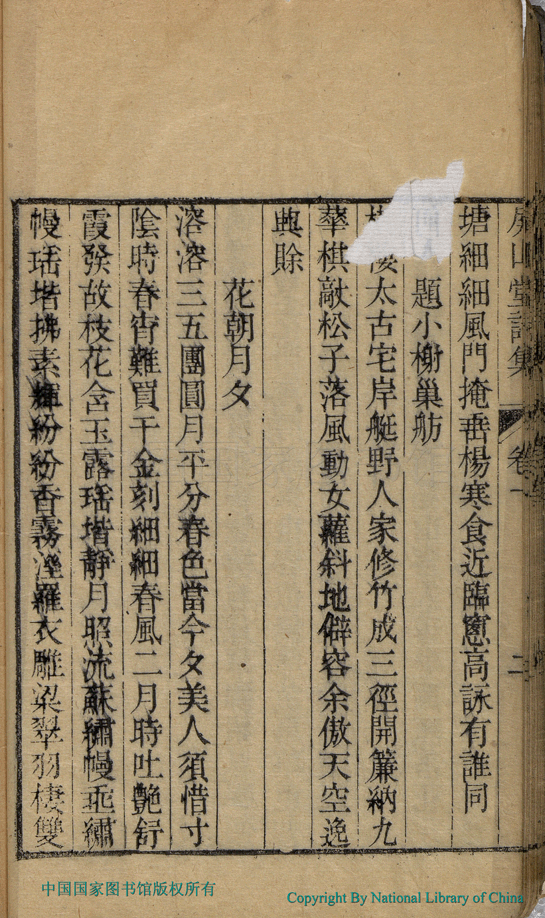 屏山堂詩集
卷一
二
塘細細風門掩垂楊寒食近臨窻高詠有誰同
題小榭巢舫
太古宅岸艇野人家修竹成三徑開簾納九
華棋敲松子落風動女蘿斜地僻容余傲天空逸
興賒
花朝月夕
溶溶三五團圓月平分春色當今夕美人須惜寸
陰時春宵難買千金刻細細春風二月時吐艷舒
霞發故枝花含玉露瑶堦靜月照流蘇繡幔垂繡
幔瑶堦拂素輝紛紛香霧溼羅衣雕梁翠羽棲雙
中国国家图书馆版权所有
Copyright By National Library of China